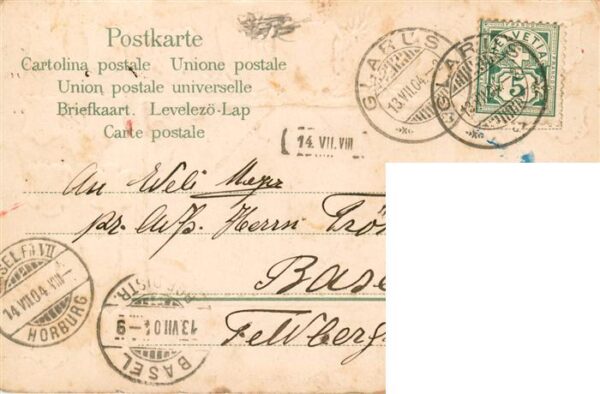 Postkarte
Cartolina postale Unione postale
Union postale universelle
Briefkaart. Levelezö-Lap
Carte postale
GLARUS
13.VII.04
GLARUS
HELVETIA
5
14. VII. VIII
An Meyer
pr. Herrn
Base
Feldberg
14 VII 04 VIII
HORBURG
13.VII.04 — 9
BASEL